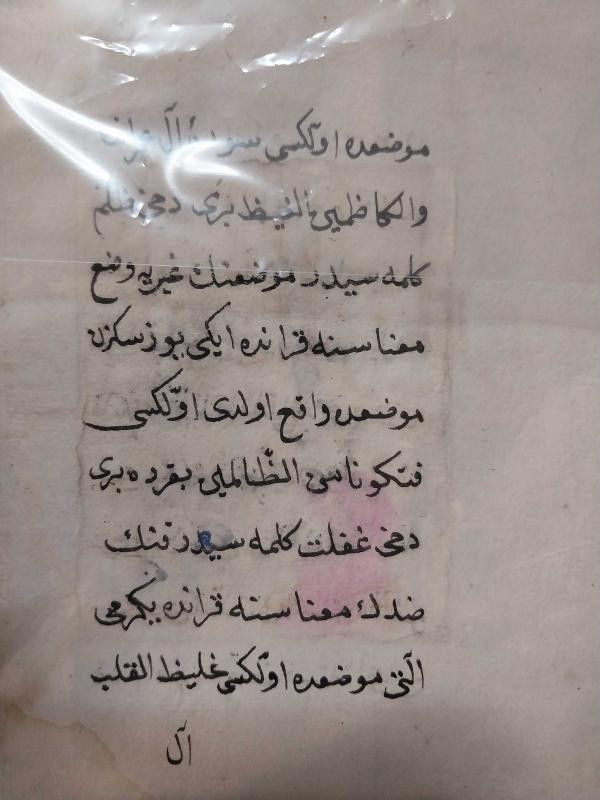 موضعده اوّلكسى سورۀ آل عمران
والكاظمين الغيظ برى دخى ظلم
كلمه سيدر موضعنك غيريه وضع
معناسنه قرانده ايكى يوز سكزن
موضعده واقع اولدى اوّلكسى
فتكونا من الظّالمين بقرده برى
دخى غفلت كلمه سيدر فنك
ضدك معناسنه قرانده يكرمى
التى موضعده اوّلكسى غليظ القلب
آل